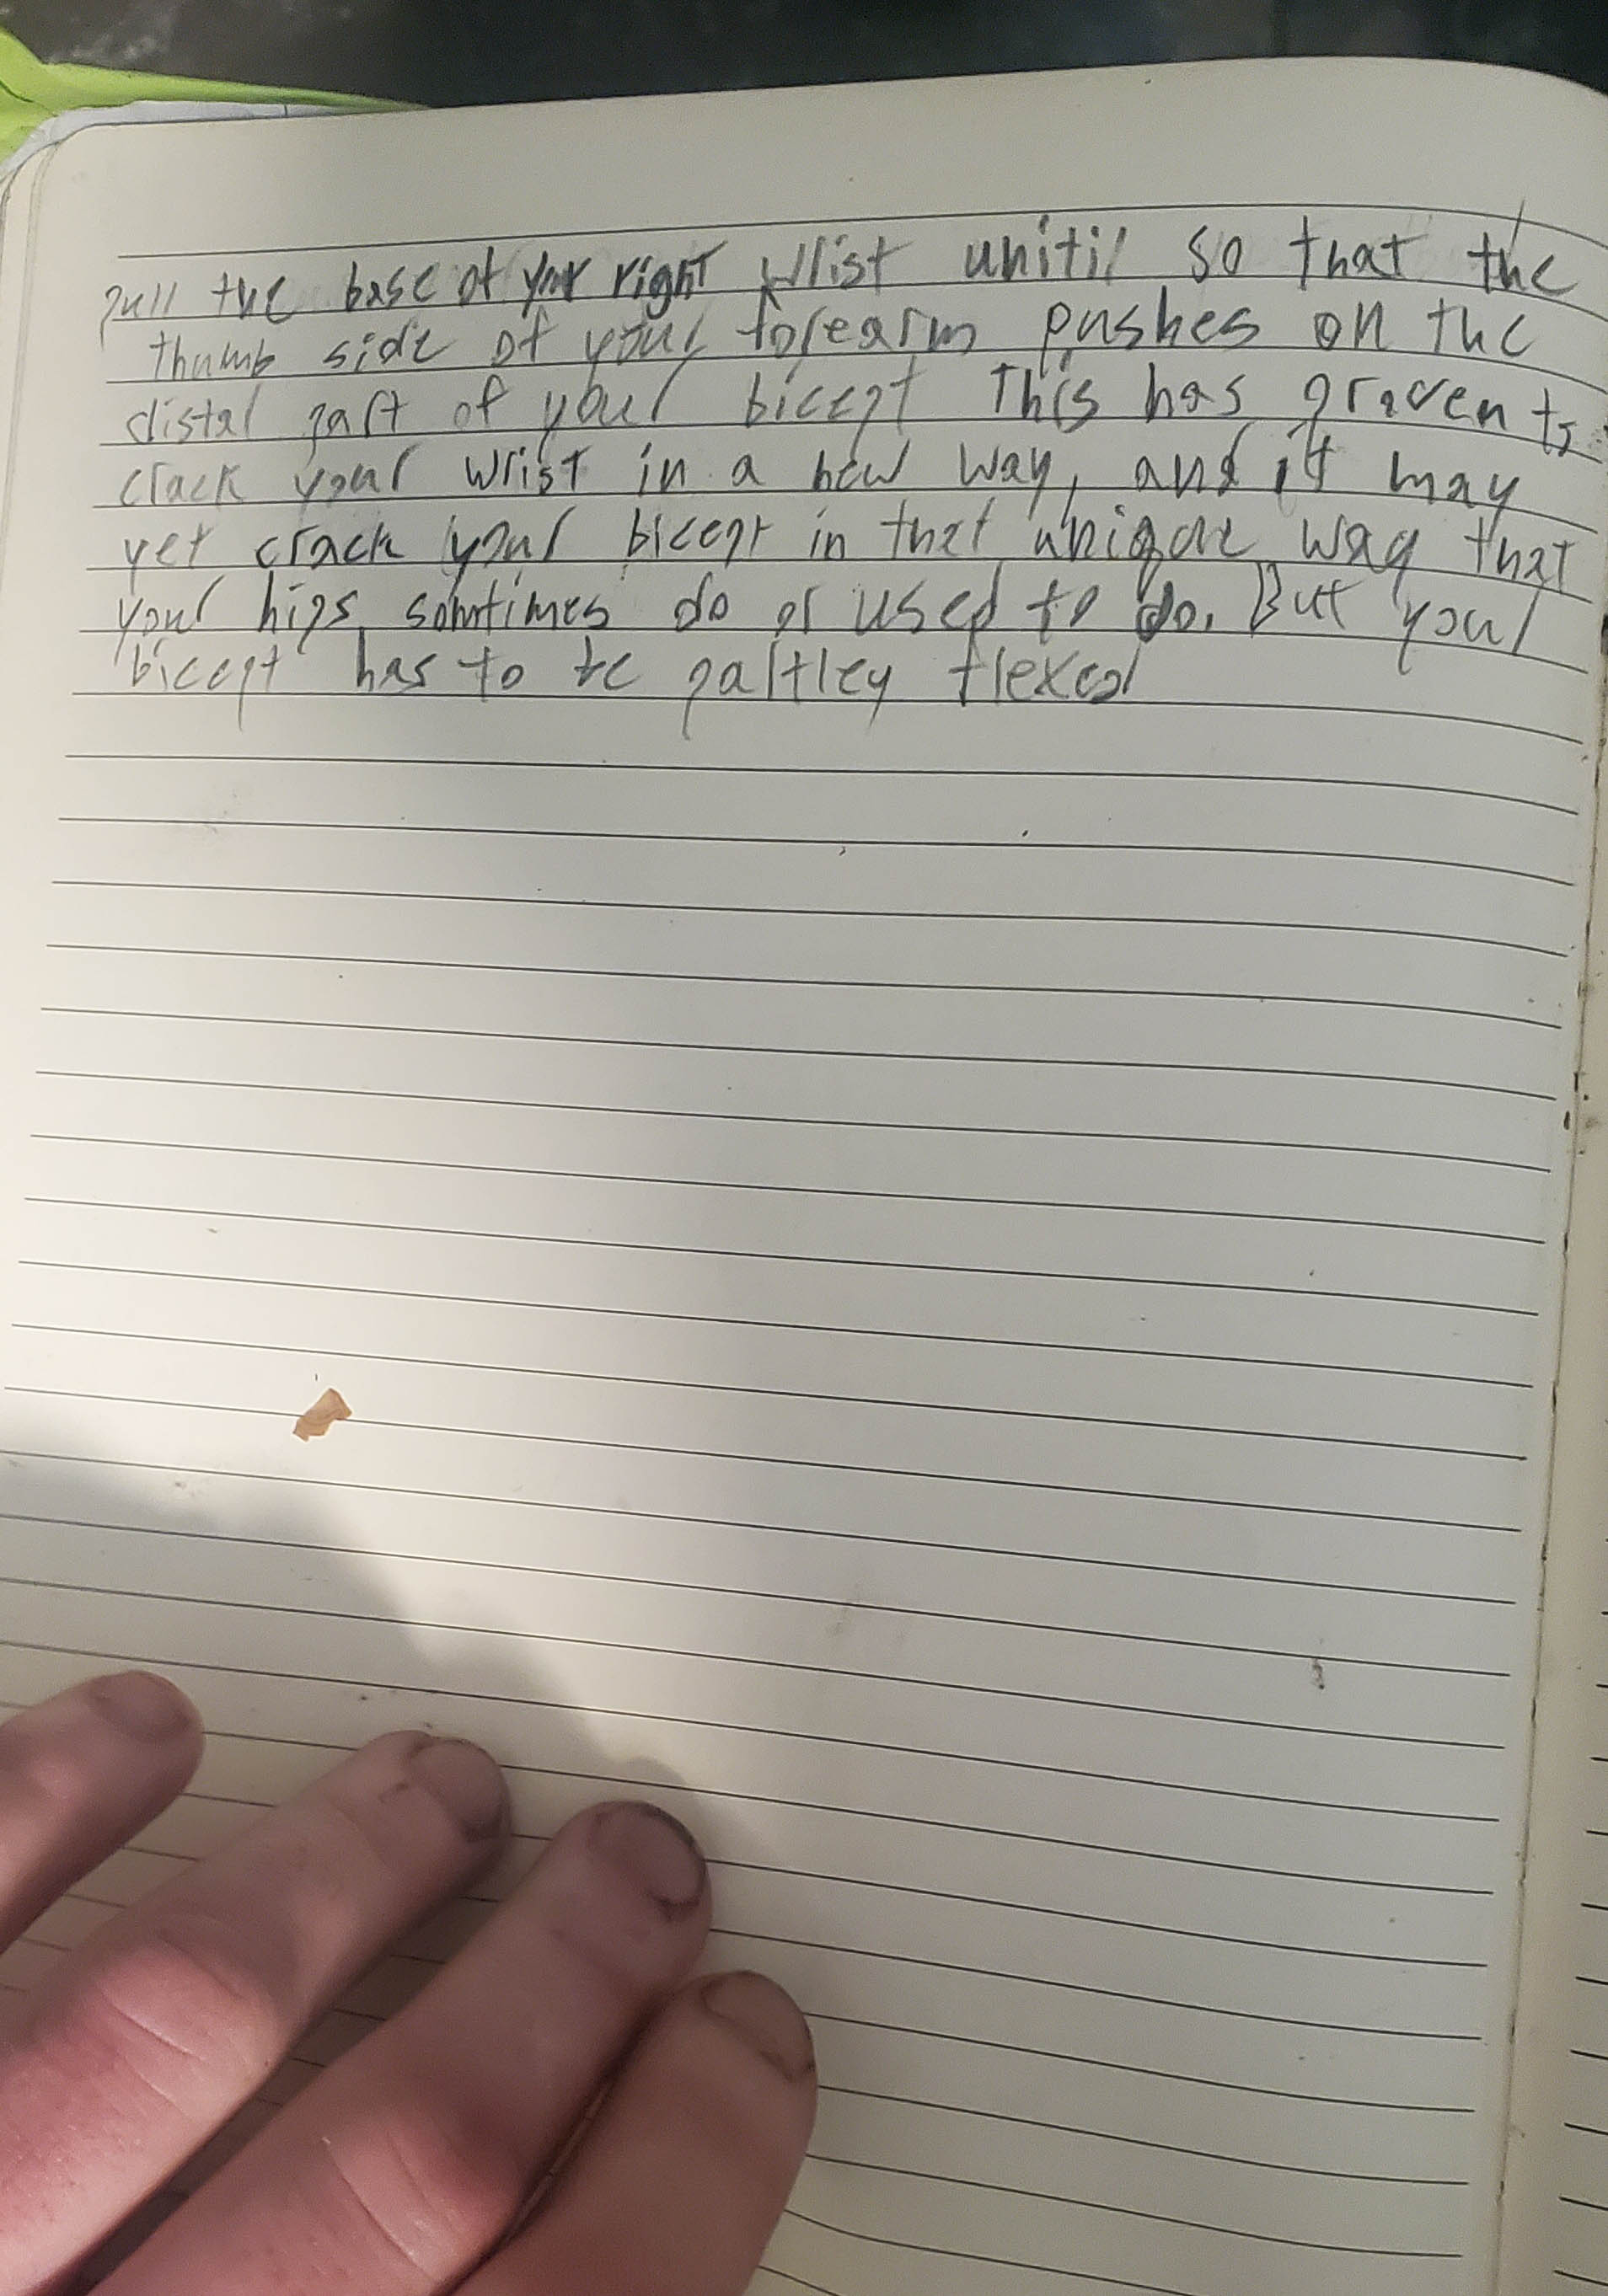 pull the base of your right wrist unitil so that the
thumb side of your forearm pushes on the
distal part of your bicept This has proven to
crack your wrist in a new way, and it may
yet crack your bicept in that unique way that
your hips somtimes do or used to do. But your
bicept has to be partley flexed